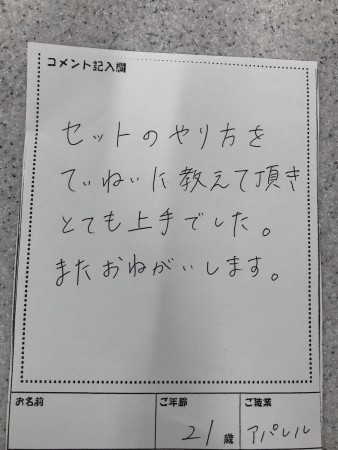 コメント記入欄
セットのやり方を
ていねいに教えて頂き
とても上手でした。
またおねがいします。
お名前
ご年齢
ご職業
21歳
アパレル